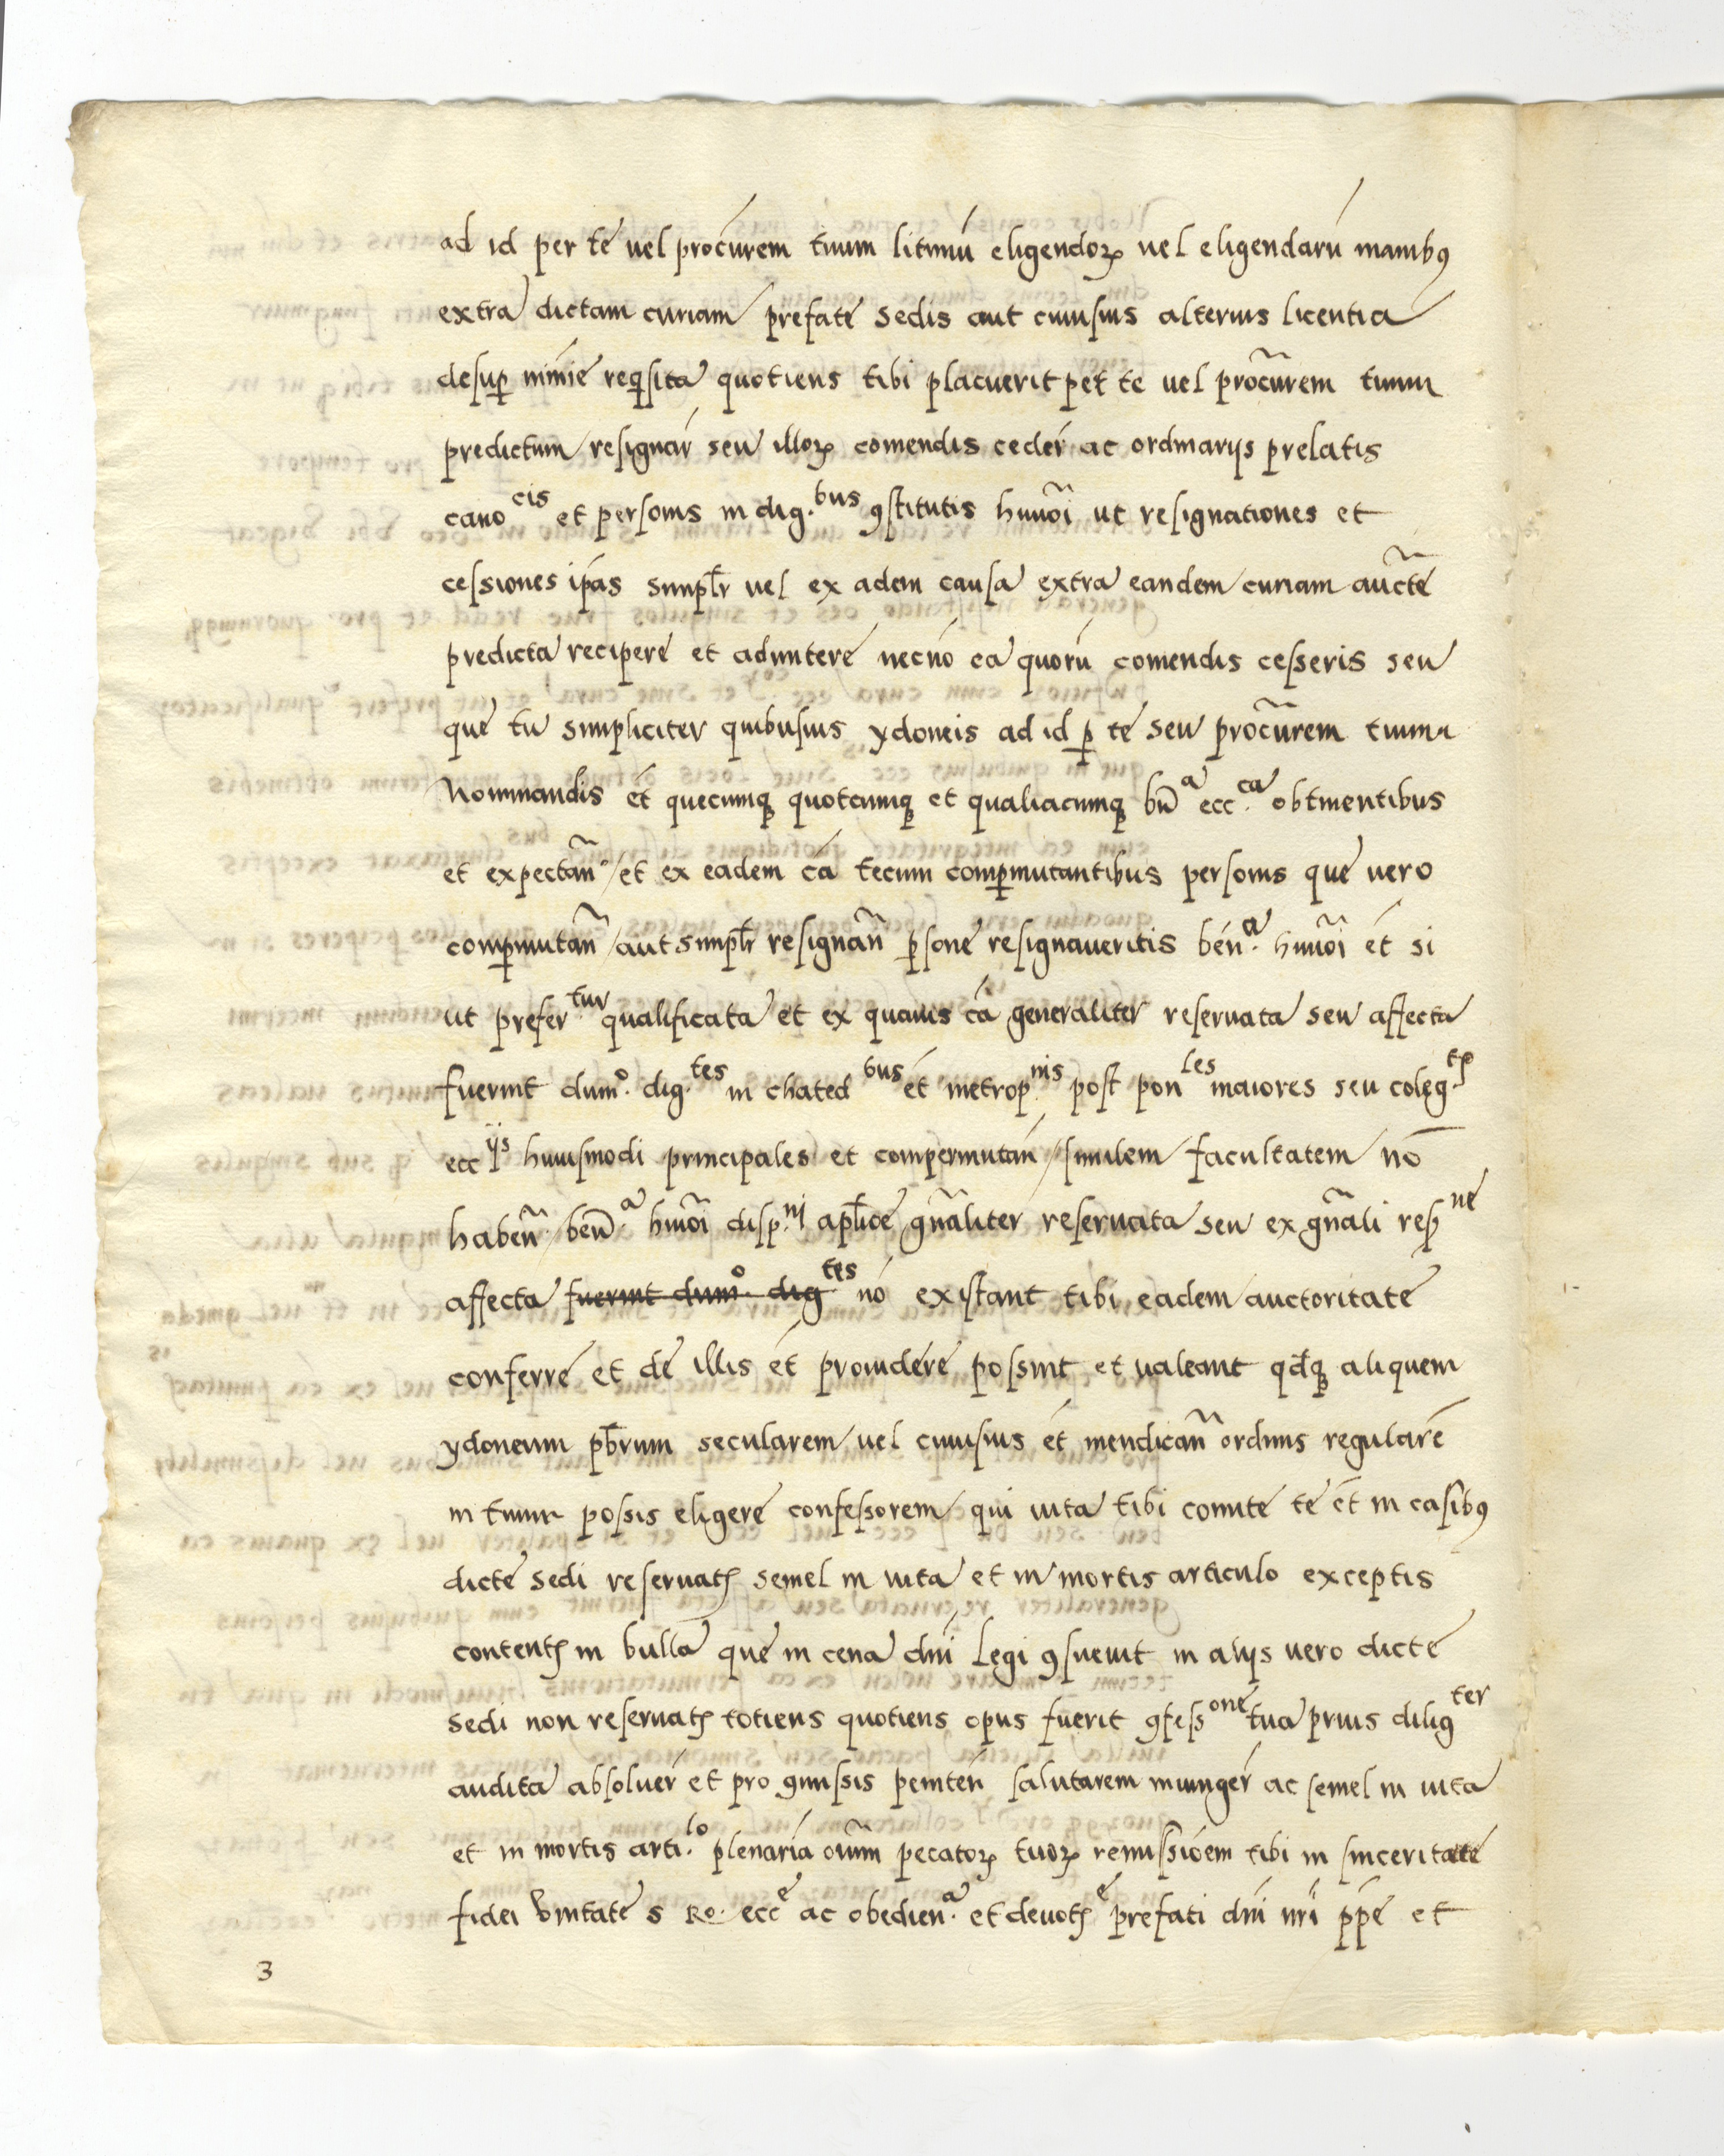 ad id per te vel procurem tuum litimu eligendoꝝ vel eligendaru manibꝯ
extra dictam curiam prefate sedis aut cuiusuis alterius licentia
desuꝑ minime reqsita quotiens tibi placuerit per te uel procurem tuum
predictum resignar seu illoꝝ comendis ceder ac ordinarijs prelatis
cano cis et personis in dig.bus ꝯstitutis huiuoi ut resignationes et
cessiones ipas simplr uel ex adem causa extra eandem curiam aucte
predicta recipere et admittere necno ea quoru comendis cesseris seu
que tu simpliciter quibusuis ydoneis ad id ꝑ te seu procurem tuum
Nominandis et quecumqꝫ quotcumqꝫ et qualiacumqꝫ bn a ecc.ca obtinentibus
et expectan./ et ex eadem ca tecum comꝑmutantibus personis que uero
comꝑmutan / aut simplr resignan ꝑsone resignaueritis ben.a huiuoi et si
ut prefer.tur qualificata et ex quauis ca generaliter reseruata seu affecta
fuerint dum.o dig.tes in chated bus et metrop.nis post pon les maiores seu coleg.
ecc ijs huiusmodi principales et compermutan / similem facultatem no
haben./ ben.a hmoi disp.ni aplice gnaliter reseruata seu ex gnali resꝑ ne
affecta fuerint dum.o dig tes no existant tibi eadem auctoritate
conferre et de illis et prouidere possint et ualeant qdqꝫ aliquem
ydoneum pbrum secularem uel cuiusuis et mendican ordinis regulare
in tuum possis eligere confessorem qui uita tibi comite te et in casibꝯ
dicte sedi reseruatꝭ semel in uita et in mortis articulo exceptis
contentꝭ in bulla que in cena dni legi ꝯsueuit in alijs uero dicte
sedi non reseruatꝭ totiens quotiens opus fuerit ꝯfess one tua prius dilig ter
audita absoluer et pro ꝯmissis peniten salutarem iniunger ac semel in uita
et in mortis arti.lo plenaria oium pecatoꝝ tuoꝝ remissioem tibi in sinceritate
fidei Vnitate s Ro. ecc e ac obedien.a et deuotꝭ e prefati dni nri ppe et
3